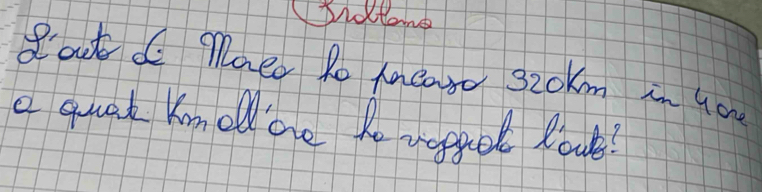 Problema
L'auto di Marco ha percorso 320Km in 4 ore
a quat Km all'ora ha viaggiato l'auto?